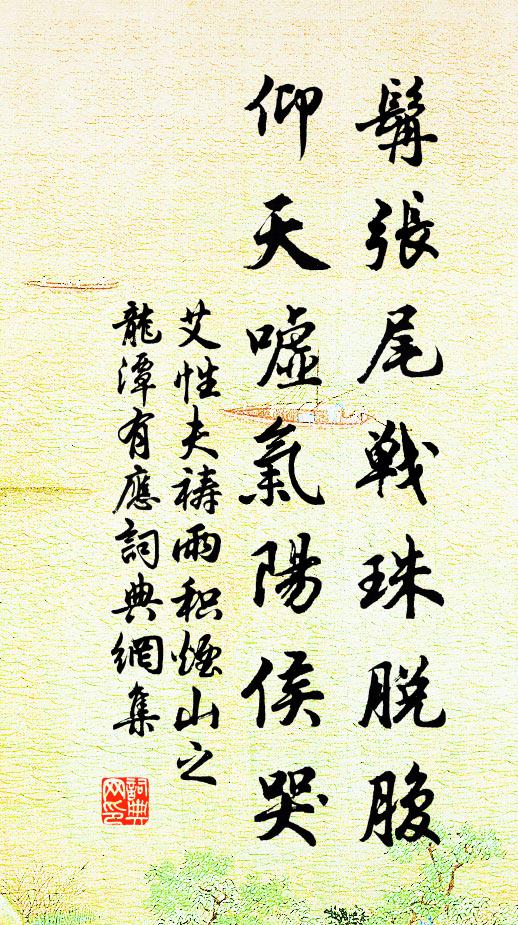 髯張尾戰珠脱腹
仰天噓氣陽侯哭
艾性夫禱雨积煙山之
龍潭有應詞典網集
詞典
网印